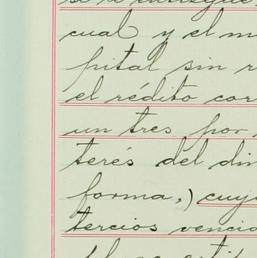 cual y el m
pital sin r
el rédito cor
un tres por
terés del din
forma,) cuy
tercios venci